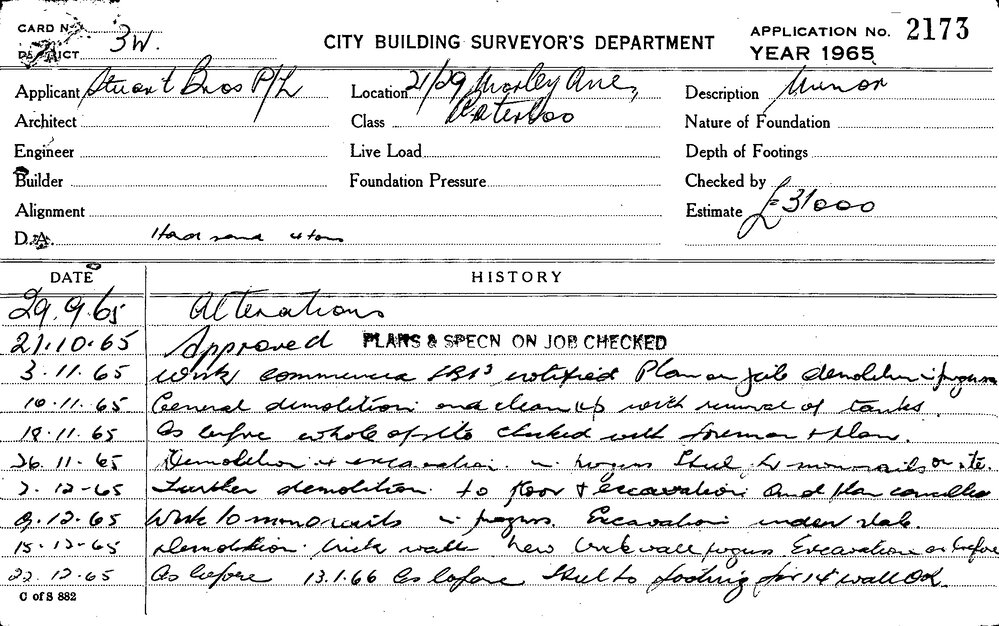 CARD No.
DISTRICT 3W.
CITY BUILDING SURVEYOR'S DEPARTMENT
APPLICATION No. 2173
YEAR 1965
Applicant Stuart Bros P/L
Location 21/29 Morley Ave,
Description Minor
Architect
Class Waterloo
Nature of Foundation
Engineer
Live Load
Depth of Footings
Builder
Foundation Pressure
Checked by
Alignment
Estimate £31000
D.A.
DATE HISTORY
29.9.65 Alterations
21.10.65 Approved PLANS & SPECN ON JOB CHECKED
3.11.65 Work notified Plan on job demolition in progress
10.11.65 General demolition and clean up with removal of tanks.
18.11.65 As before whole of site checked with foreman & plan.
26.11.65 Demolition & excavation in progress Steel for monorails on site.
2.12-65 Further demolition to floor & excavation and plan
9.12.65 Work to monorails in progress. Excavation under slab.
15.12-65 Demolition brick walls New brick wall progress Excavation as before
22.12.65 As before 13.1.66 As before Steel to footing for 14" wall OK.
C of S 882